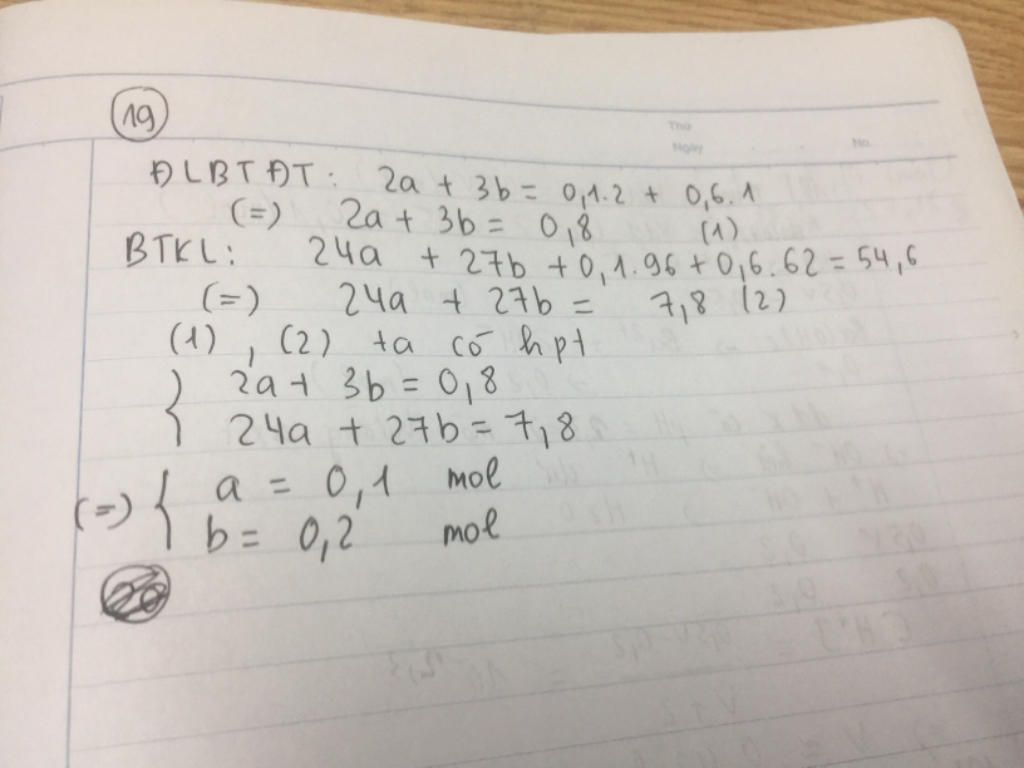 19
Thứ
Ngày
No.
ĐLBTĐT: 2a + 3b = 0,1.2 + 0,6.1
(=) 2a + 3b = 0,8 (1)
BTKL: 24a + 27b + 0,1.96 + 0,6.62 = 54,6
(=) 24a + 27b = 7,8 (2)
(1), (2) ta có hpt
{ 2a + 3b = 0,8
24a + 27b = 7,8
(=) { a = 0,1 mol
b = 0,2 mol